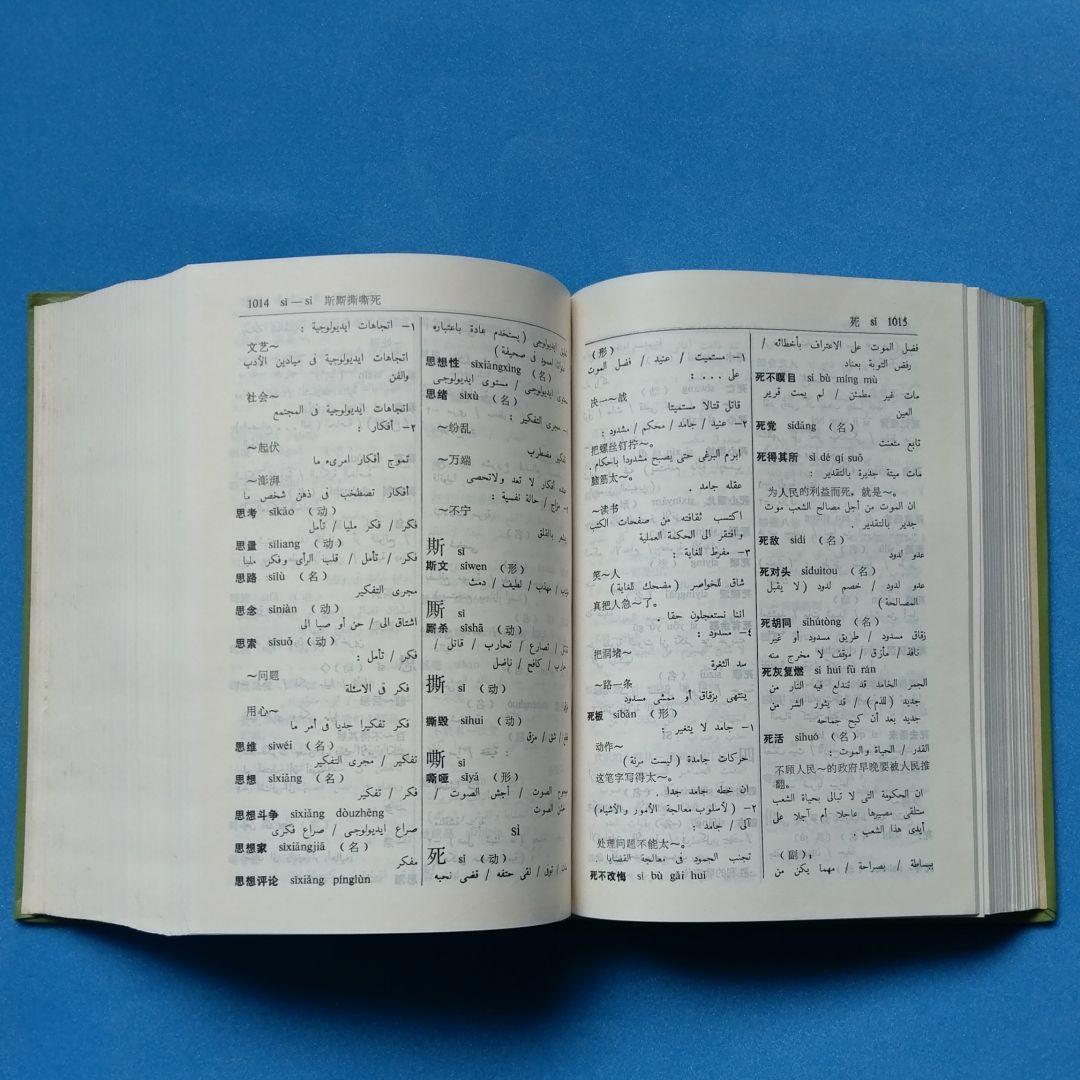 1014 sī — sǐ 斯厮撕嘶死
١- اتجاهات ايديولوجية :
文艺~
اتجاهات ايديولوجية فى ميادين الأدب
والفن
社会~
اتجاهات ايديولوجية فى المجتمع
٢- أفكار :
~起伏
تموج أفكار امرىء ما
~澎湃
أفكار تصطخب فى ذهن شخص ما
思考 sīkǎo (动)
فكر / فكر مليا / تأمل
思量 sīliang (动)
فكر / تأمل / قلب الرأى وفكر مليا
思路 sīlù (名)
مجرى التفكير
思念 sīniàn (动)
اشتاق الى / حن أو صبا الى
思索 sīsuǒ (动)
فكر / تأمل :
~问题
فكر فى الامثلة
用心~
فكر تفكيرا جديا فى أمر ما
思维 sīwéi (名)
تفكير / مجرى التفكير
思想 sīxiǎng (名)
فكر / تفكير
思想斗争 sīxiǎng dòuzhēng
صراع ايديولوجى / صراع فكرى
思想家 sīxiǎngjiā (名)
مفكر
思想评论 sīxiǎng pínglùn
ايديولوجى (يستخدم عادة باعتباره
لعمود فى صحيفة)
思想性 sīxiǎngxìng (名)
ايديولوجى / مستوى ايديولوجى
思绪 sīxù (名)
١- مجرى التفكير :
~纷乱
تفكير مضطرب
~万端
أفكار لا تعد ولاتحصى
مزاج / حالة نفسية :
~不宁
بالقلق
斯 sī
斯文 sīwen (形)
مهذب / لطيف / دمث
厮 sī
厮杀 sīshā (动)
تصارع / تحارب / قاتل /
كافح / ناضل
撕 sī (动)
撕毁 sīhuǐ (动)
شق / مزق
嘶 sī
嘶哑 sīyǎ (形)
الصوت / أجش الصوت /
الصوت
sǐ
死 sǐ (动)
مات / توفى / لقى حتفه / قضى نحبه
死 sǐ 1015
(形)
١- مستميت / عنيد / فضل الموت
على ... :
决一~战
قاتل قتالا مستميتا
٢- عنيد / جامد / محكم / مشدود :
把螺丝钉拧~。
ابرم البرغى حتى يصبح مشدودا باحكام .
脑筋太~。
عقله جامد .
~读书
اكتسب ثقافته من صفحات الكتب
وافتقر الى الحكمة العملية
٣- مفرط للغاية :
笑~人
شاق للخواصر (مضحك للغاية)
真把人急~了。
اننا نستعجلون حقا .
٤- مسدود :
把洞堵~
سد الثغرة
~路一条
ينتهى بزقاق أو ممشى مسدود
死板 sǐbǎn (形)
١- جامد لا يتغير :
动作~
حركات جامدة (ليست مرنة)
这笔字写得太~。
ان خطه جامد جدا .
٢- (لأسلوب معالجة الأمور والأشياء)
آلى / جامد :
处理问题不能太~。
تجنب الجمود فى معالجة القضايا
死不改悔 sǐ bù gǎi huǐ
فضل الموت على الاعتراف بأخطائه /
رفض التوبة بعناد
死不瞑目 sǐ bù míng mù
مات غير مطمئن / لم يمت قرير
العين
死党 sǐdǎng (名)
تابع متعنت
死得其所 sǐ dé qí suǒ
مات ميتة جديرة بالتقدير :
为人民的利益而死，就是~。
ان الموت من أجل مصالح الشعب موت
جدير بالتقدير .
死敌 sǐdí (名)
عدو لدود
死对头 sǐduìtou (名)
عدو لدود / خصم لدود (لا يقبل
المصالحة)
死胡同 sǐhútòng (名)
زقاق مسدود / طريق مسدود أو غير
نافذ / مأزق / موقف لا مخرج منه
死灰复燃 sǐ huī fù rán
الجمر الخامد قد تندلع فيه النار من
جديد (للذم) / قد يثور الشر من
جديد بعد أن كبح جماحه
死活 sǐhuó (名)
القدر / الحياة والموت :
不顾人民~的政府早晚要被人民推
翻。
ان الحكومة التى لا تبالى بحياة الشعب
ستلقى مصيرها عاجلا أم آجلا على
أيدى هذا الشعب .
(副)：
ببساطة / بصراحة / مهما يكن من